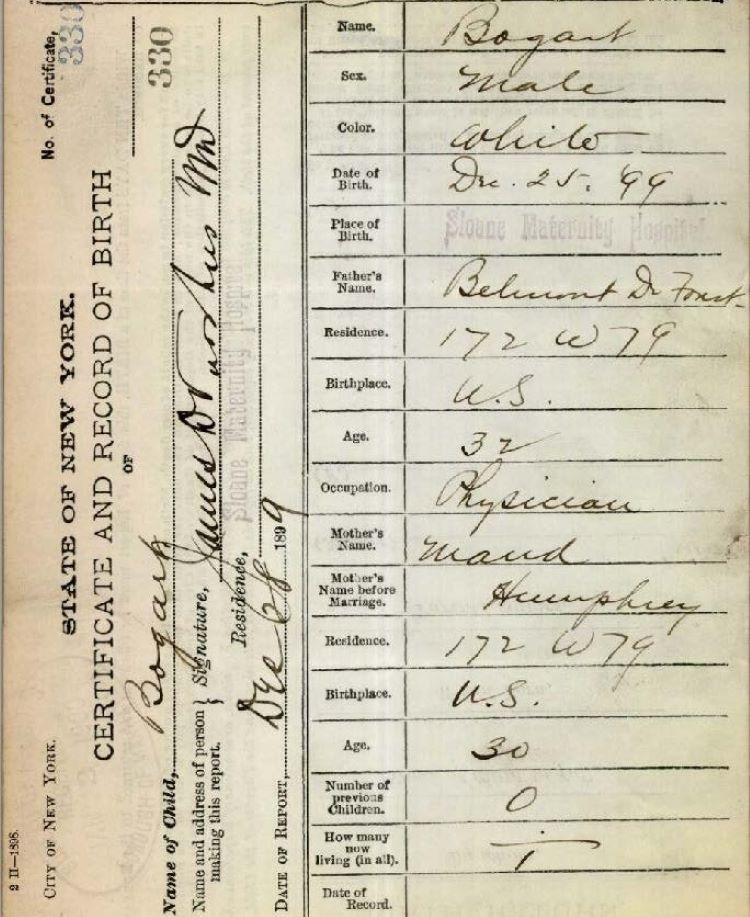 2 H—1898.
CITY OF NEW YORK.
STATE OF NEW YORK.
No. of Certificate,
330
CERTIFICATE AND RECORD OF BIRTH
OF
330
Name of Child, Bogart
Name and address of person making this report.
Signature, James MD
Residence, Sloane Maternity Hospital
DATE OF REPORT, Dec 28 1899
Name. Bogart
Sex. Male
Color. White
Date of Birth. Dec. 25. '99
Place of Birth. Sloane Maternity Hospital.
Father's Name. Belmont De Forest
Residence. 172 W 79
Birthplace. U.S.
Age. 32
Occupation. Physician
Mother's Name. Maud
Mother's Name before Marriage. Humphrey
Residence. 172 W 79
Birthplace. U.S.
Age. 30
Number of previous Children. 0
How many now living (in all). 1
Date of Record.